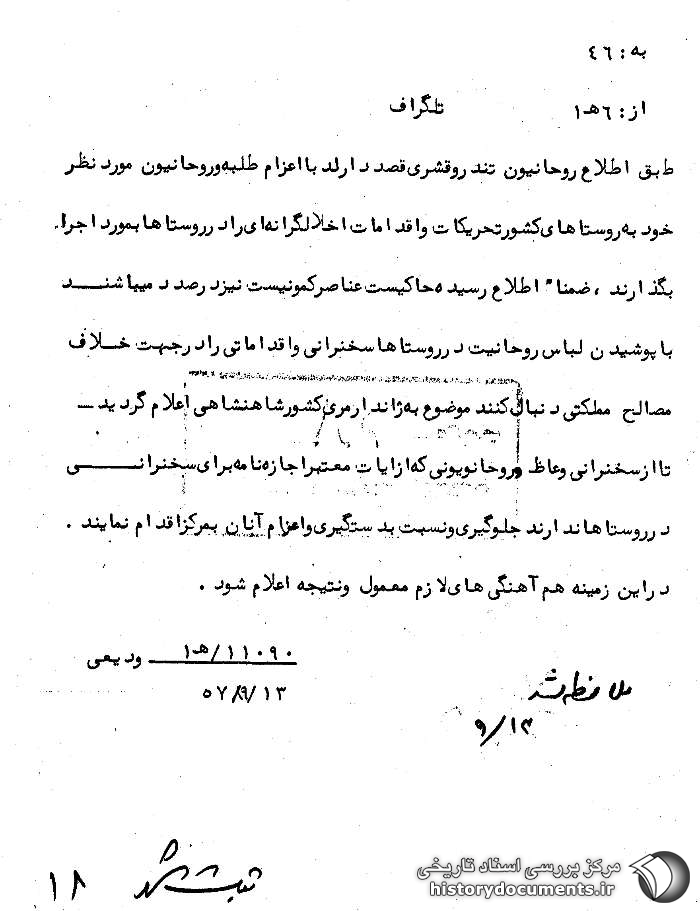 به : ٤٦
از : ٦ هـ ١ تلگراف
طبق اطلاع روحانیون تند رو قشری قصد دارند با اعزام طلبه و روحانیون مورد نظر
خود به روستاهای کشور تحریکات و اقدامات اخلالگرانه ای را در روستاها بمورد اجرا
بگذارند ، ضمناً اطلاع رسیده حاکیست عناصر کمونیست نیز در صدد میباشند
با پوشیدن لباس روحانیت در روستاها سخنرانی و اقداماتی را در جهت خلاف
مصالح مملکتی دنبال کنند موضوع به ژاندارمری کشور شاهنشاهی اعلام گردید
تا از سخنرانی وعاظ و روحانویونی که از ایات معتبر اجازه نامه برای سخنرانی
در روستاها ندارند جلوگیری و نسبت بدستگیری و اعزام آنان بمرکز اقدام نمایند .
در این زمینه هم آهنگی های لازم معمول و نتیجه اعلام شود .
١١٠٩٠/هـ ١ ودیعی
٥٧/٩/١٣
ملاحظه شد
٩/١٣
ثبت شد
١٨
مرکز بررسی اسناد تاریخی
historydocuments.ir